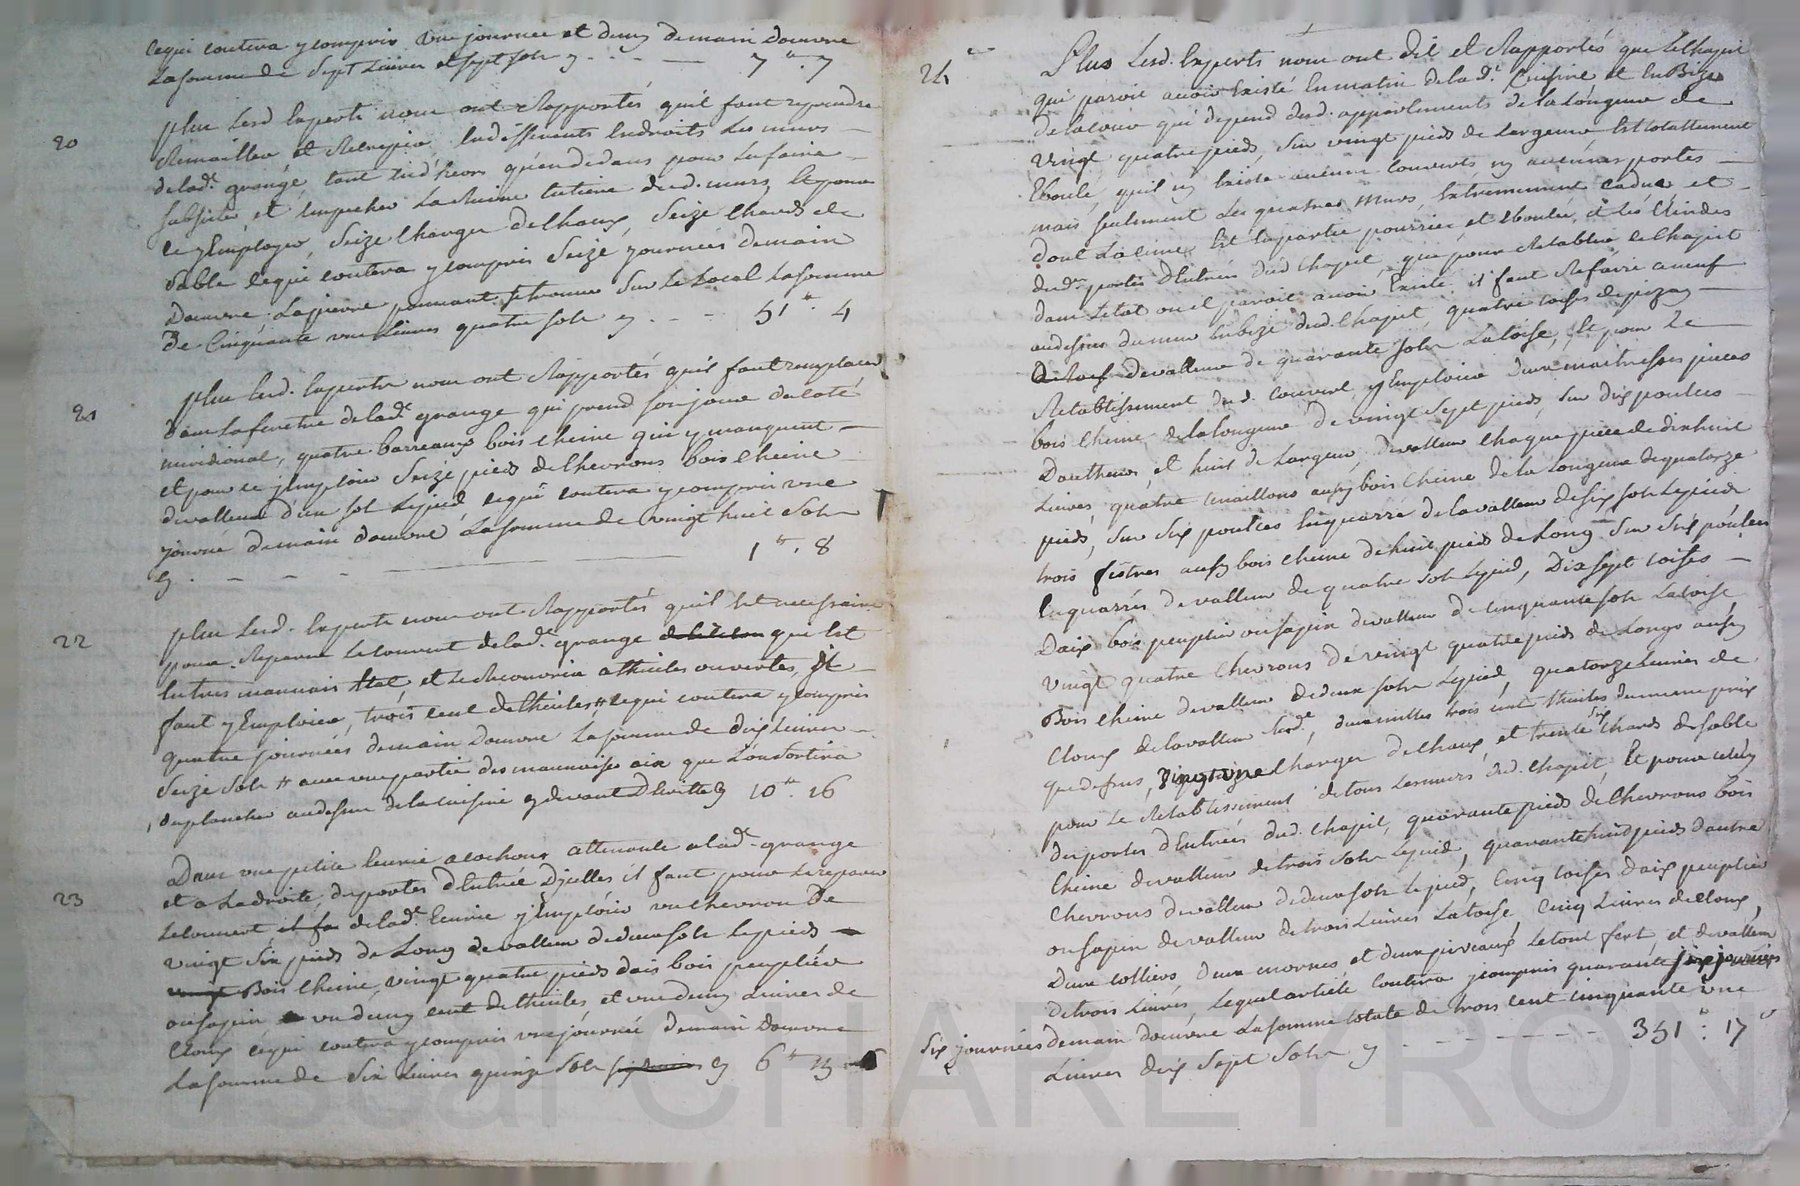 cequi coutera ycompris une journée et demy demain douvre
La somme de Sept Livres et sept sols cy . . . — 7tt. 7
20
plus Lesd. Experts nous ont Rapportés quil faut reprendre
Remailler et Recrepir En differents Endroits Les murs
delade grange, tant En dehors qu'en dedans pour La faire
subsister et Empecher La Ruine entiere desd. murs, et pour
ce y Employer, Seize Charges de Chaux, Seize Chards de
Sable cequi coutera y compris Seize journées demain
Douvre La pierre pouvant se trouver Sur Le Local La somme
De Cinquante une Livres quatre sols cy . . . - 51tt. 4
21
plus Lesd. Experts nous ont Rapportés qu'il faut remplacer
dans La fenetre delade grange qui prend son jour du coté
meridional, quatre barreaux bois Cheine qui y manquent —
et pour ce y Emploier Seize pieds de Chevrons bois Cheine
de valleur d'un sol Le pied, cequi coutera y compris une
journé demain douvre La somme de vingt huit Sols
cy . - - - 1tt. 8
22
plus Lesd. Experts nous ont Rapportés quil Est necessaire
pour Reparer Le couvert delade grange que Est
En tres mauvais Etat, et Le Recouvrir a thuiles ouvertes, Il
faut y Emploier, trois cent de thuiles # cequi coutera y compris
quatre journées demain Douvre La somme de dix Livres
Seize Sols # avec une partie des mauvaises aix que L'on sortira
du plancher au dessus de la cuisine cy devant Ecritte cy 10tt. 16
23
Dans une petite Ecurie a cochons attenante a lade grange
et a La droite, des portes d'Entrée D'jcelles il faut pour Le reparer
Le couvert il fa delade Ecurie y Emploier un chevron De
vingt Six pieds de Long de valleur de deux sols Le pieds —
vingt Bois Cheine, vingt quatre pieds dais bois peuplier
ou sapin un demy cent de thuiles, et une demy Livres de
Cloux cequi coutera y compris une journée demain Douvre
La somme de Six Livres quinze Sols cy 6tt 15
24e
Plus Lesd. Experts nous ont Dit et Rapportés que Le Chapit
qui paroit avoir Existé En matin delade Cuisine et En Bize
de la cour qui depend desd. appartements de la Longueur de
vingt quatre pieds, Sur vingt pieds de Largeur Est totallement
Eboulé, quil ny Existe aucun couverts, ny aucunes portes —
mais seulement Les quatres murs, Extremement caducs et
dont La cime Est En partie pourrie et Eboulée, et Les Eindes
desd. portes d'Entrées dud Chapit, que pour Retablir Le Chapit
dans L'etat ou il paroit avoir Existé il faut Refaire a neuf
au dessus du mur En bize dud. Chapit, quatre toises de pizay —
de valleur de quarante sols La toise, Et pour Le
Retablissement dud. couvert y Emploier deux maitresses pieces
bois Cheine de la Longueur de vingt Sept pieds Sur dix poulces
D'autheur et huit de Largeur, de valleur chaque piece de dix huit
Livres, quatre Emaillons aussy bois Cheine de la Longueur de quatorze
pieds, Sur Six poulces En quarré de la valleur de six sols Le pied
trois festres aussy bois cheine de huit pieds de Long Sur Six poulces
En quarrés de valleur de quatre sols Le pied, Dix sept toises —
Daix bois peuplier ou sapin de valleur de cinquante sols La toise
vingt quatre Chevrons de vingt quatre pieds de Longs aussy
Bois Cheine de valleur de deux sols Le pied, quatorze Livres de
Cloux de la valleur Susde, deux milles trois cent thuiles du meme prix
que dessus, Charges de Chaux, et trente six Chards de Sable
pour Le Retablissement de tous Les murs dud. Chapit, Et pour celuy
des portes d'Entrées dud. Chapit, quarante pieds de Chevrons bois
Cheine de valleur de trois sols Le pied, quarante huit pieds d'autre
Chevrons de valleur de deux sols Le pied, Cinq toises daix peuplier
ou sapin de valleur de trois Livres La toise, Cinq Livres de Cloux,
Deux colliers, deux mornes et deux piveaux Le tout fert, et de valleur
de trois Livres, Lequel article coutera y compris quarante six journées
Six journées demain douvre La somme totale de trois cent cinquante une
Livres dix Sept Sols cy - - - - - - 351tt. 17s
CHAREYRON